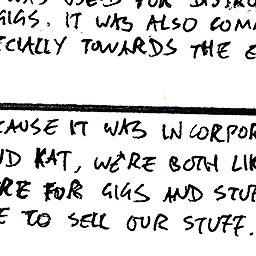 WAS USED FOR DISTRO
GIGS. IT WAS ALSO COM
ECIALLY TOWARDS THE E
CAUSE IT WAS INCORPOR
ND KAT, WE'RE BOTH LIK
RE FOR GIGS AND STUF
E TO SELL OUR STUFF.